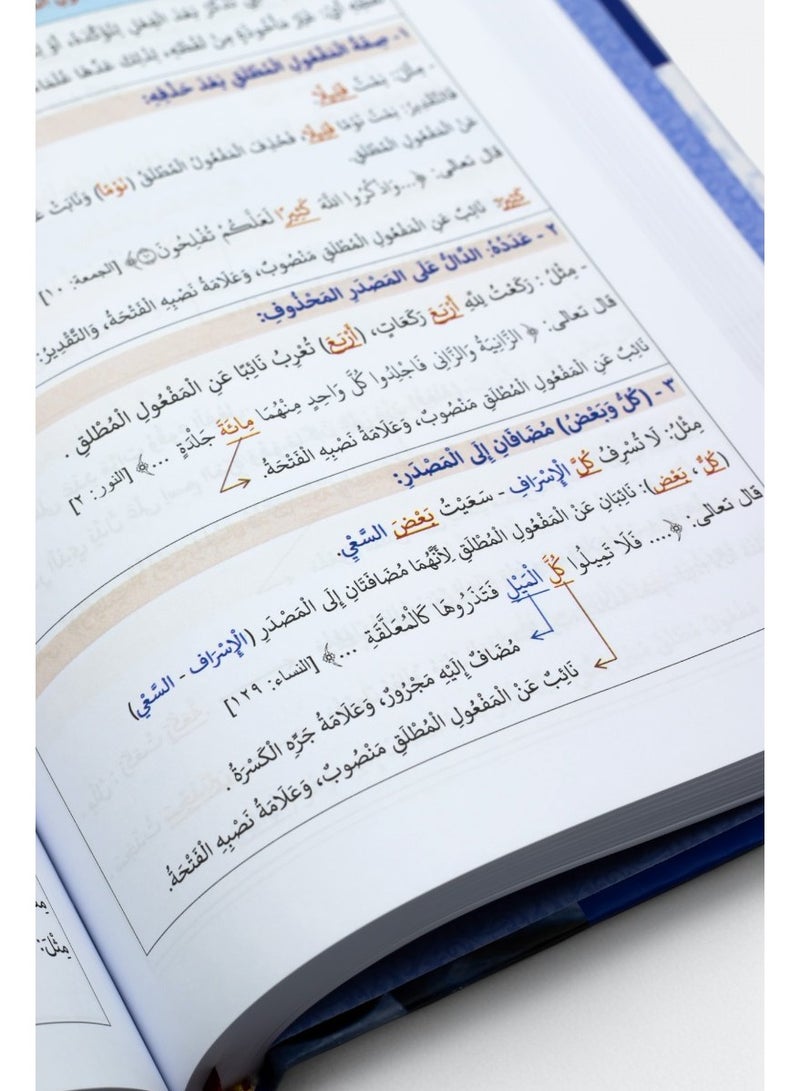 تُذْكَرُ بَعْدَ الْفِعْلِ لِتُؤَكِّدَهُ، أَوْ
أَيْ: غَيْرُ مَأْخُوذَةٍ مِنْ لَفْظِهِ، لِذَلِكَ عَدَّهَا
١ - صِفَةُ الْمَفْعُولِ الْمُطْلَقِ بَعْدَ حَذْفِهِ:
- مِثْلُ: نِمْتُ قَلِيلًا
فَالتَّقْدِيرُ: نِمْتُ نَوْمًا قَلِيلًا، فَحُذِفَ الْمَفْعُولُ الْمُطْلَقُ (نَوْمًا) وَنَابَتْ
عَنِ الْمَفْعُولِ الْمُطْلَقِ.
قال تعالى: ﴿...وَاذْكُرُوا اللَّهَ كَثِيرًا لَعَلَّكُمْ تُفْلِحُونَ ۝١٠﴾ [الجمعة: ١٠]
كَثِيرًا: نَائِبٌ عَنِ الْمَفْعُولِ الْمُطْلَقِ مَنْصُوبٌ، وَعَلَامَةُ نَصْبِهِ الْفَتْحَةُ، وَالتَّقْدِيرُ:
٢ - عَدَدُهُ: الدَّالُّ عَلَى الْمَصْدَرِ الْمَحْذُوفِ:
- مِثْلُ: رَكَعْتُ لِلَّهِ أَرْبَعَ رَكَعَاتٍ، (أَرْبَعَ) تُعْرَبُ نَائِبًا عَنِ الْمَفْعُولِ الْمُطْلَقِ.
قال تعالى: ﴿الزَّانِيَةُ وَالزَّانِي فَاجْلِدُوا كُلَّ وَاحِدٍ مِنْهُمَا مِائَةَ جَلْدَةٍ ...﴾ [النور: ٢]
نَائِبٌ عَنِ الْمَفْعُولِ الْمُطْلَقِ مَنْصُوبٌ، وَعَلَامَةُ نَصْبِهِ الْفَتْحَةُ.
٣ - (كُلُّ وَبَعْضُ) مُضَافَانِ إِلَى الْمَصْدَرِ:
مِثْلُ: لَا تُسْرِفْ كُلَّ الْإِسْرَافِ - سَعَيْتُ بَعْضَ السَّعْيِ.
(كُلَّ، بَعْضَ): نَائِبَانِ عَنِ الْمَفْعُولِ الْمُطْلَقِ لِأَنَّهُمَا مُضَافَتَانِ إِلَى الْمَصْدَرِ (الْإِسْرَاف - السَّعْيِ)
قال تعالى: ﴿.... فَلَا تَمِيلُوا كُلَّ الْمَيْلِ فَتَذَرُوهَا كَالْمُعَلَّقَةِ ...﴾ [النساء: ١٢٩]
مُضَافٌ إِلَيْهِ مَجْرُورٌ، وَعَلَامَةُ جَرِّهِ الْكَسْرَةُ.
نَائِبٌ عَنِ الْمَفْعُولِ الْمُطْلَقِ مَنْصُوبٌ، وَعَلَامَةُ نَصْبِهِ الْفَتْحَةُ.
مِثْلُ: